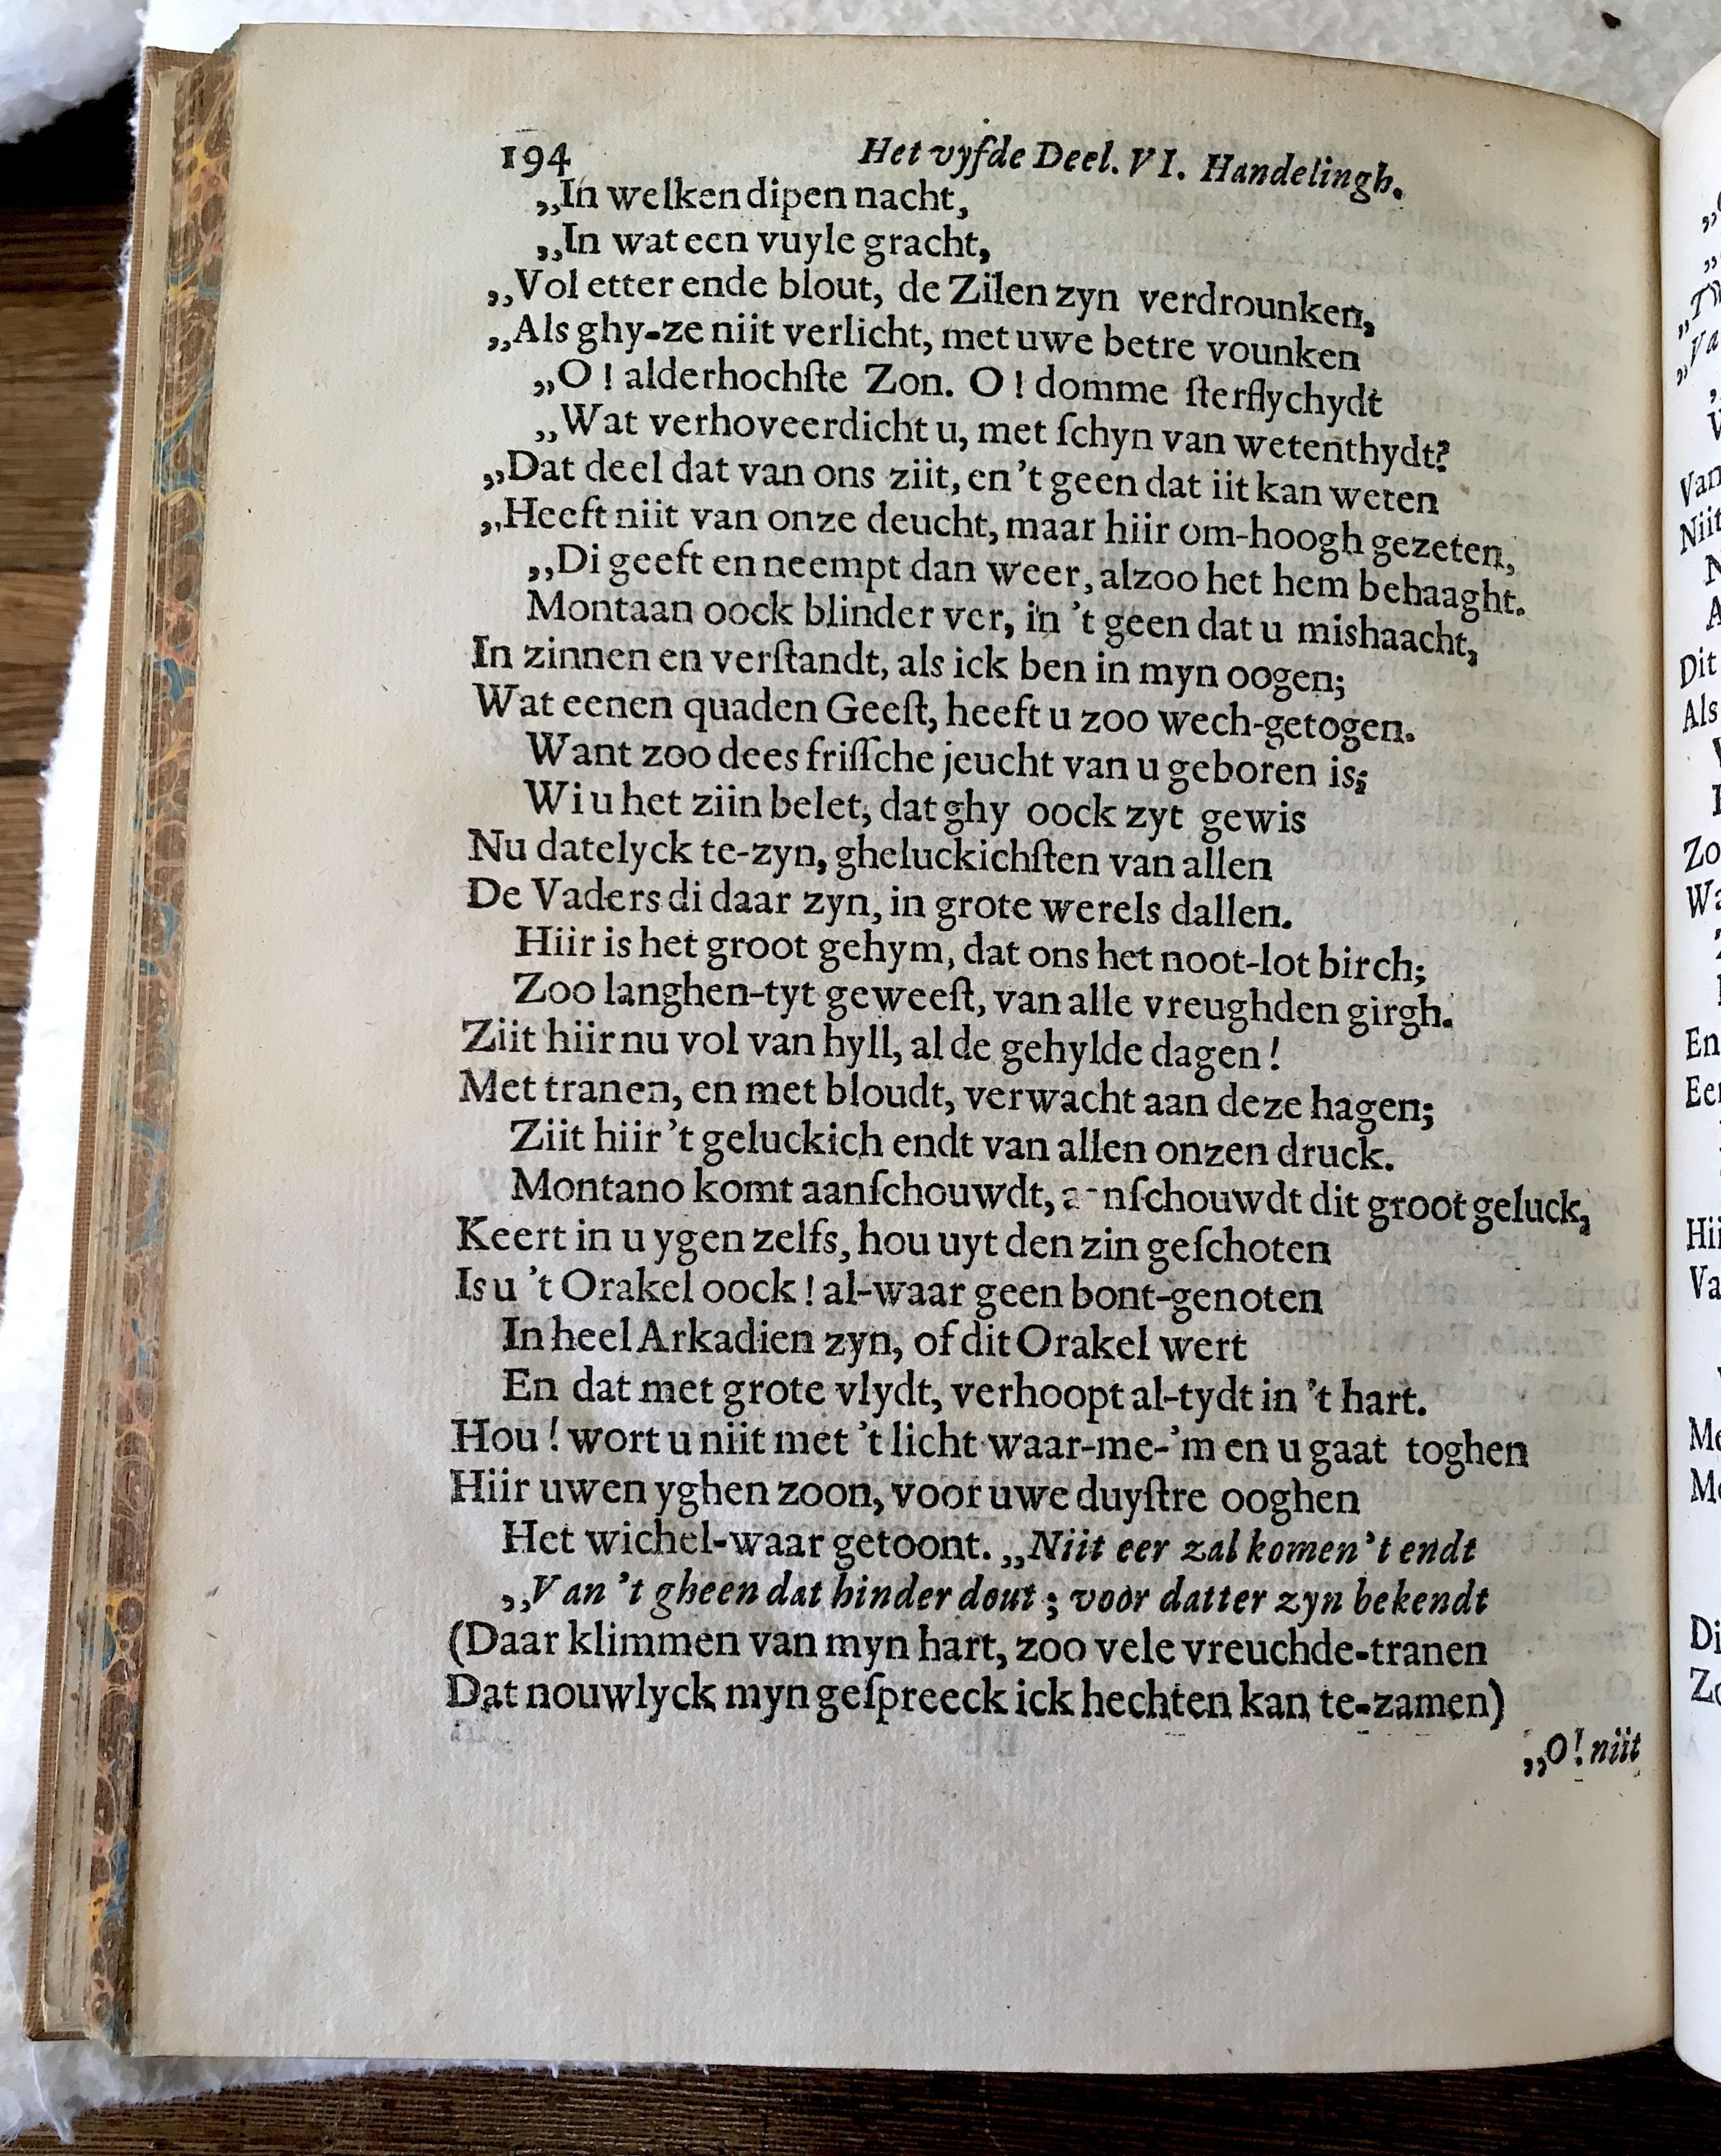 194 Het vyfde Deel. VI. Handelingh.
„In welken dipen nacht,
„In wat een vuyle gracht,
„Vol etter ende blout, de Zilen zyn verdrounken,
„Als ghy-ze niit verlicht, met uwe betre vounken
„O! alderhochſte Zon. O! domme ſterflychydt
„Wat verhoveerdicht u, met ſchyn van wetenthydt?
„Dat deel dat van ons ziit, en 't geen dat iit kan weten
„Heeft niit van onze deucht, maar hiir om-hoogh gezeten,
„Di geeft en neempt dan weer, alzoo het hem behaaght.
Montaan oock blinder ver, in 't geen dat u mishaacht,
In zinnen en verſtandt, als ick ben in myn oogen;
Wat eenen quaden Geeſt, heeft u zoo wech-getogen.
Want zoo dees friſſche jeucht van u geboren is;
Wi u het ziin belet, dat ghy oock zyt gewis
Nu datelyck te-zyn, gheluckichſten van allen
De Vaders di daar zyn, in grote werels dallen.
Hiir is het groot gehym, dat ons het noot-lot birch;
Zoo langhen-tyt geweeſt, van alle vreughden girgh.
Ziit hiir nu vol van hyll, al de gehylde dagen!
Met tranen, en met bloudt, verwacht aan deze hagen;
Ziit hiir 't geluckich endt van allen onzen druck.
Montano komt aanſchouwdt, a-nſchouwdt dit groot geluck,
Keert in u ygen zelfs, hou uyt den zin geſchoten
Is u 't Orakel oock! al-waar geen bont-genoten
In heel Arkadien zyn, of dit Orakel wert
En dat met grote vlydt, verhoopt al-tydt in 't hart.
Hou! wort u niit met 't licht waar-me-'m en u gaat toghen
Hiir uwen yghen zoon, voor uwe duyſtre ooghen
Het wichel-waar getoont. „Niit eer zal komen 't endt
„Van 't gheen dat hinder dout; voor datter zyn bekendt
(Daar klimmen van myn hart, zoo vele vreuchde-tranen
Dat nouwlyck myn geſpreeck ick hechten kan te-zamen)
„O! niit